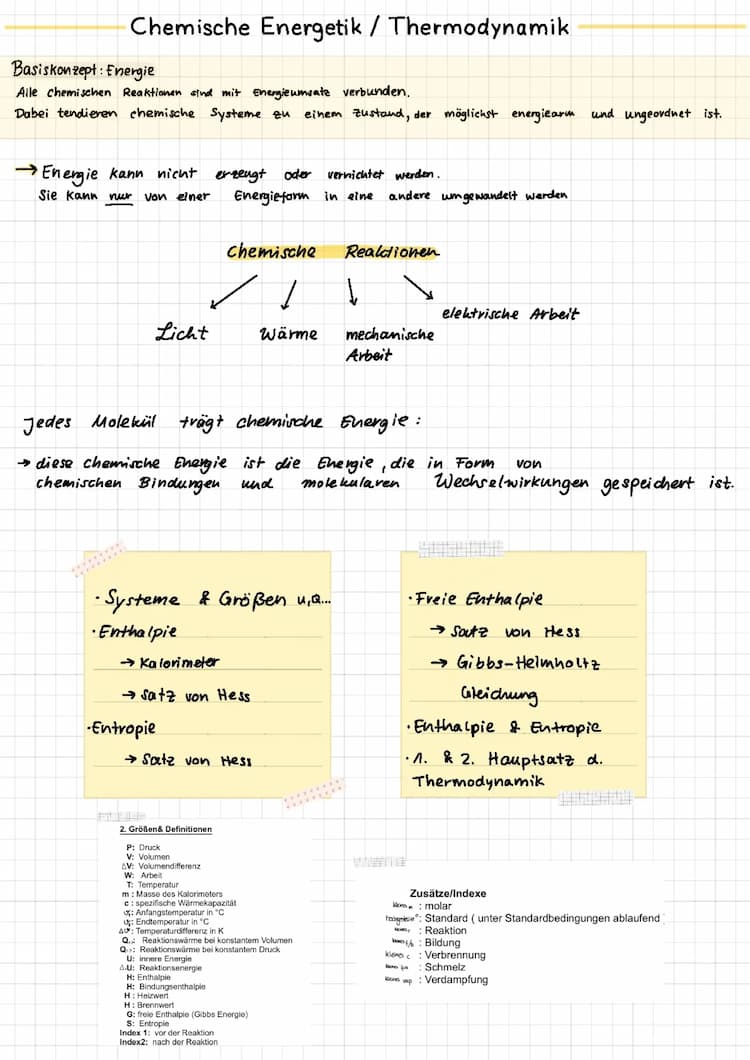 Chemische Energetik / Thermodynamik
Basiskonzept: Energie
Alle chemischen Reaktionen sind mit Energieumsatz verbunden.
Dabei tendieren chemische Systeme zu einem Zustand, der möglichst energiearm und ungeordnet ist.
→ Energie kann nicht erzeugt oder vernichtet werden.
Sie kann nur von einer Energieform in eine andere umgewandelt werden
Chemische Reaktionen
Licht Wärme mechanische Arbeit elektrische Arbeit
Jedes Molekül trägt chemische Energie:
→ diese chemische Energie ist die Energie, die in Form von
chemischen Bindungen und molekularen Wechselwirkungen gespeichert ist.
· Systeme & Größen U,Q...
· Enthalpie
→ Kalorimeter
→ Satz von Hess
· Entropie
→ Satz von Hess
· Freie Enthalpie
→ Satz von Hess
→ Gibbs-Helmholtz
Gleichung
· Enthalpie & Entropie
· 1. & 2. Hauptsatz d.
Thermodynamik
2. Größen& Definitionen
P: Druck
V: Volumen
△V: Volumendifferenz
W: Arbeit
T: Temperatur
m : Masse des Kalorimeters
c : spezifische Wärmekapazität
: Anfangstemperatur in °C
: Endtemperatur in °C
: Temperaturdifferenz in K
: Reaktionswärme bei konstantem Volumen
: Reaktionswärme bei konstantem Druck
U: innere Energie
: Reaktionsenergie
H: Enthalpie
H: Bindungsenthalpie
H : Heizwert
H : Brennwert
G: freie Enthalpie (Gibbs Energie)
S: Entropie
Index 1: vor der Reaktion
Index2: nach der Reaktion
Zusätze/Indexe
kleines m : molar
: Standard ( unter Standardbedingungen ablaufend
: Reaktion
: Bildung
kleines c : Verbrennung
: Schmelz
: Verdampfung